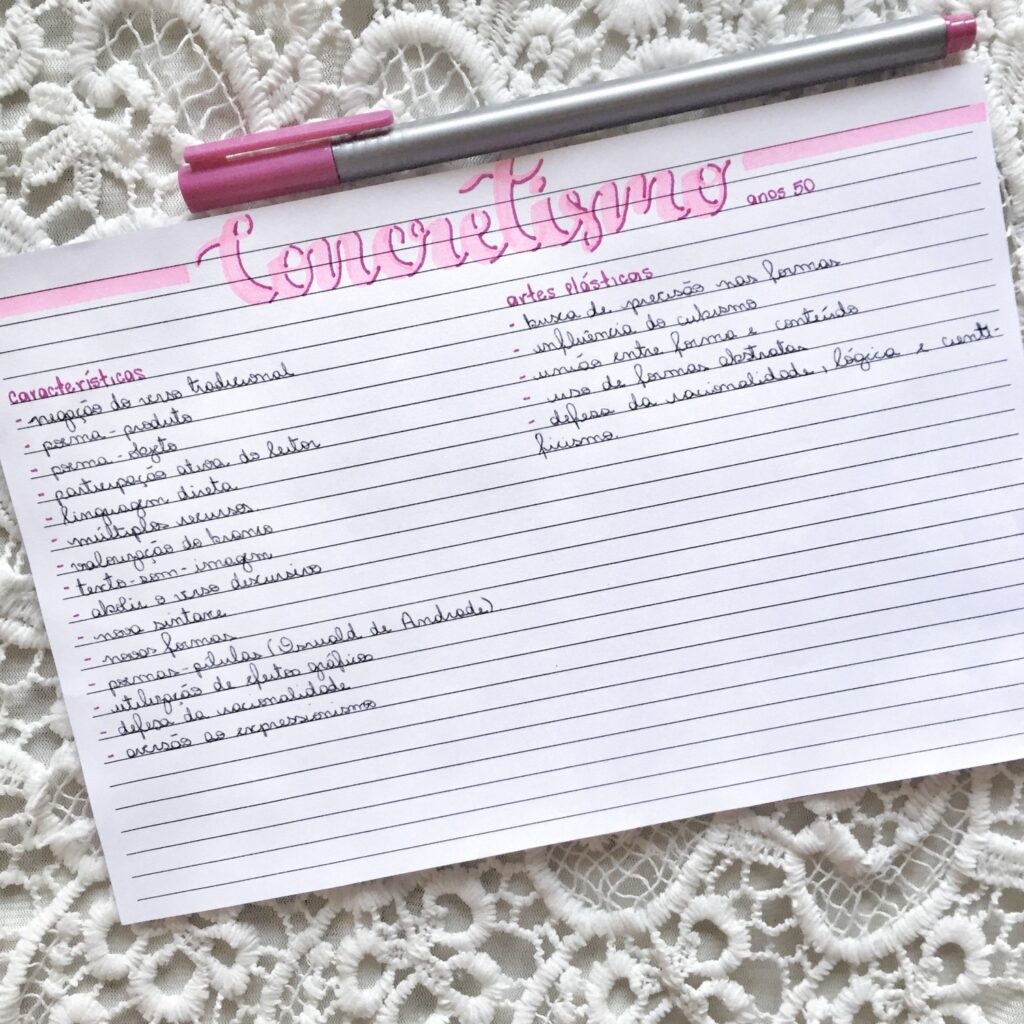 Concretismo anos 50
características
- negação do verso tradicional
- poema-produto
- poema-objeto
- participação ativa do leitor
- linguagem direta
- múltiplos recursos
- valorização do branco
- texto-som-imagem
- abolir o verso discursivo
- nova sintaxe
- novas formas
- poemas-pílulas (Oswald de Andrade)
- utilização de efeitos gráficos
- defesa da racionalidade
- aversão ao expressionismo
artes plásticas
- busca de precisão nas formas
- influência do cubismo
- união entre forma e conteúdo
- uso de formas abstratas
- defesa da racionalidade, lógica e cienti-
ficismo.